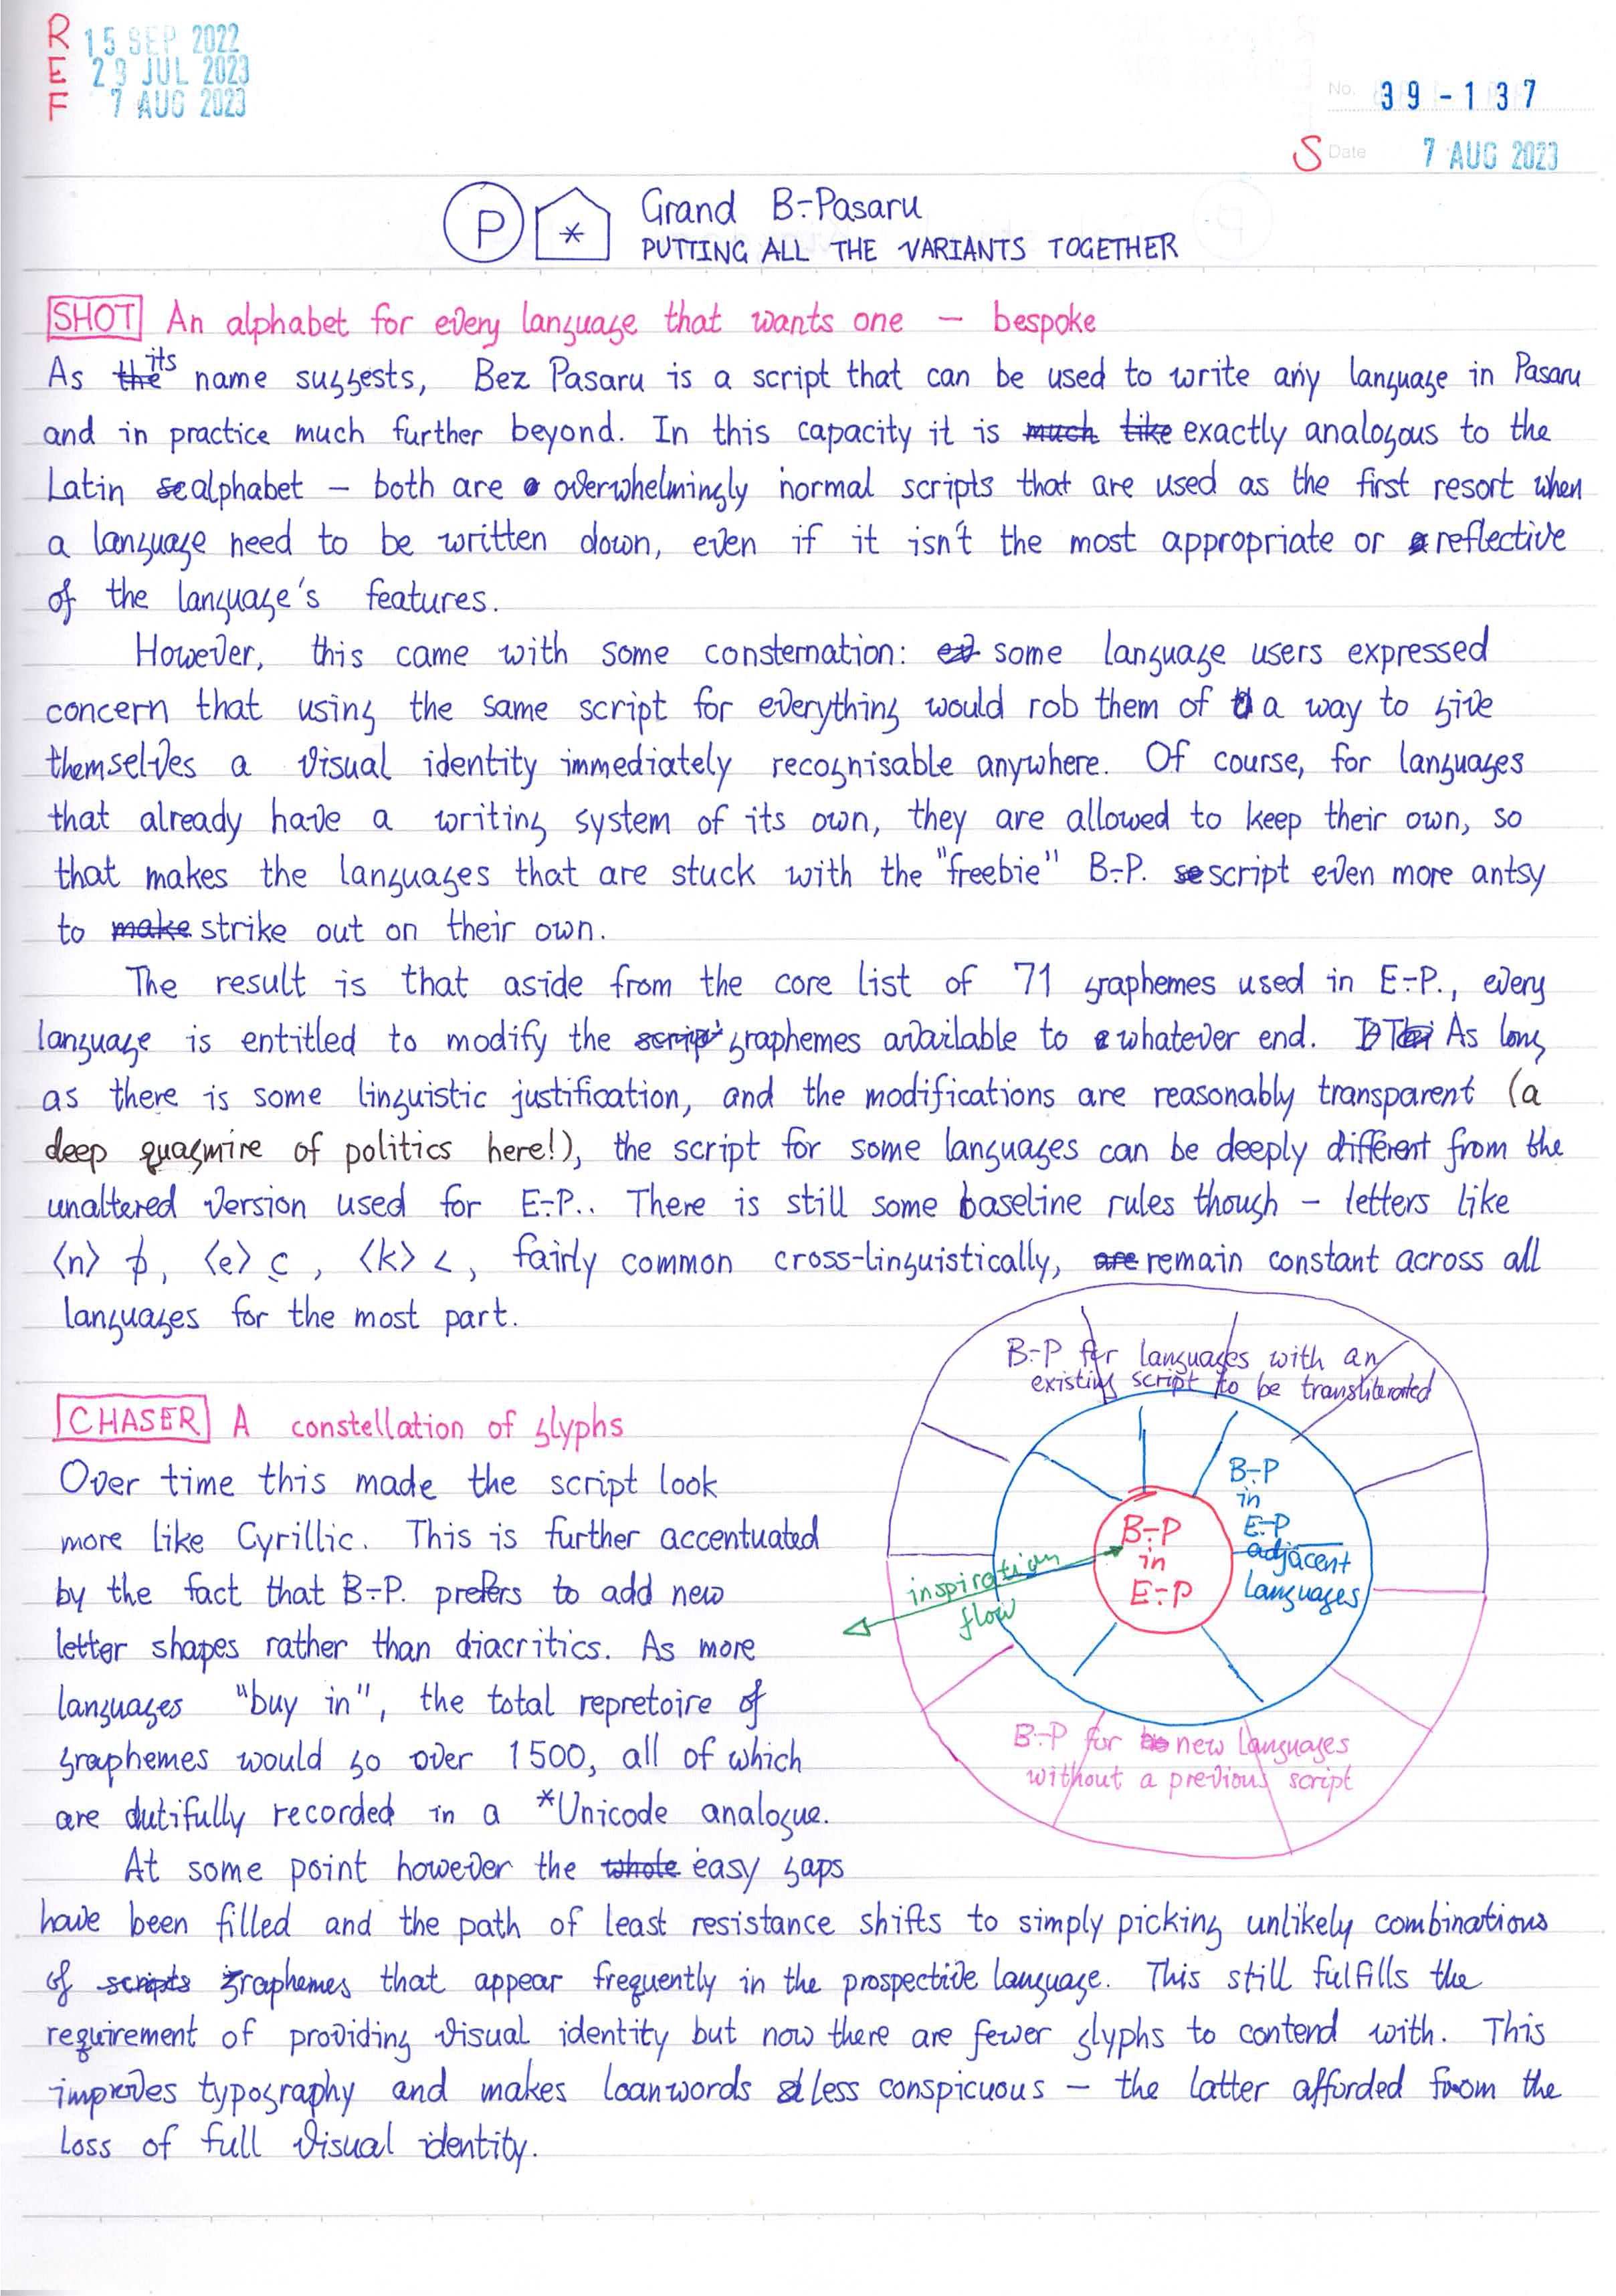 R 15 SEP 2022
E 29 JUL 2023
F 7 AUG 2023
No. 39-137
S Date 7 AUG 2023
P * Grand B-:-Pasaru
PUTTING ALL THE VARIANTS TOGETHER
SHOT An alphabet for every language that wants one – bespoke
As the its name suggests, Bez Pasaru is a script that can be used to write any language in Pasaru
and in practice much further beyond. In this capacity it is much like exactly analogous to the
Latin sc alphabet – both are overwhelmingly normal scripts that are used as the first resort when
a language need to be written down, even if it isn't the most appropriate or reflective
of the language's features.
However, this came with some consternation: some language users expressed
concern that using the same script for everything would rob them of a way to give
themselves a visual identity immediately recognisable anywhere. Of course, for languages
that already have a writing system of its own, they are allowed to keep their own, so
that makes the languages that are stuck with the "freebie" B-:-P. se script even more antsy
to make strike out on their own.
The result is that aside from the core list of 71 graphemes used in E-:-P., every
language is entitled to modify the script graphemes available to whatever end. As long
as there is some linguistic justification, and the modifications are reasonably transparent (a
deep quagmire of politics here!), the script for some languages can be deeply different from the
unaltered version used for E-:-P.. There is still some baseline rules though – letters like
⟨n⟩ , ⟨e⟩ , ⟨k⟩ <, fairly common cross-linguistically, are remain constant across all
languages for the most part.
B-:-P for languages with an
existing script to be transliterated
B-:-P
in
E-:-P
adjacent
languages
B-:-P
in
E-:-P
inspiration
flow
B-:-P for new languages
without a previous script
CHASER A constellation of glyphs
Over time this made the script look
more like Cyrillic. This is further accentuated
by the fact that B-:-P. prefers to add new
letter shapes rather than diacritics. As more
languages "buy in", the total repretoire of
graphemes would go over 1500, all of which
are dutifully recorded in a *Unicode analogue.
At some point however the whole easy gaps
have been filled and the path of least resistance shifts to simply picking unlikely combinations
of scripts graphemes that appear frequently in the prospective language. This still fulfills the
requirement of providing visual identity but now there are fewer glyphs to contend with. This
improves typography and makes loanwords less conspicuous – the latter afforded from the
loss of full visual identity.